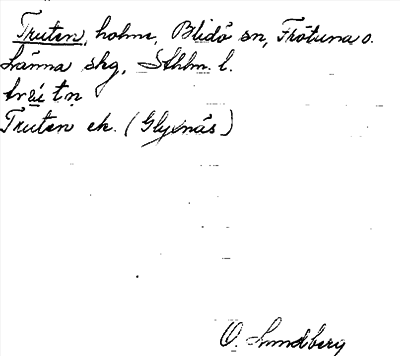 Truten, holme, Blidö sn, Frötuna o.
Länna skg, Sthlm. l.
tn
Truten ek. (Glyxnäs)
O. Lundberg